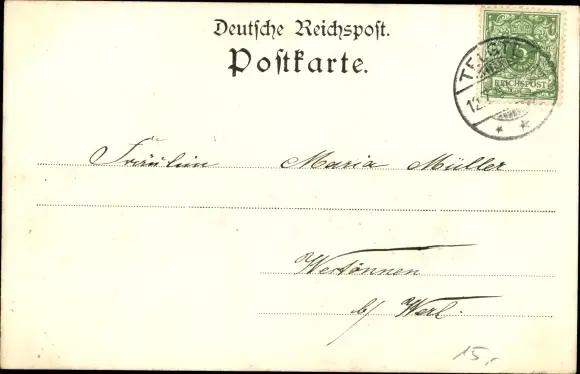 Deutsche Reichspost.
Postkarte.
5
REICHSPOST
TELGTE
12.
Fräulein Maria Müller
Westönnen
b/ Werl.
15,-